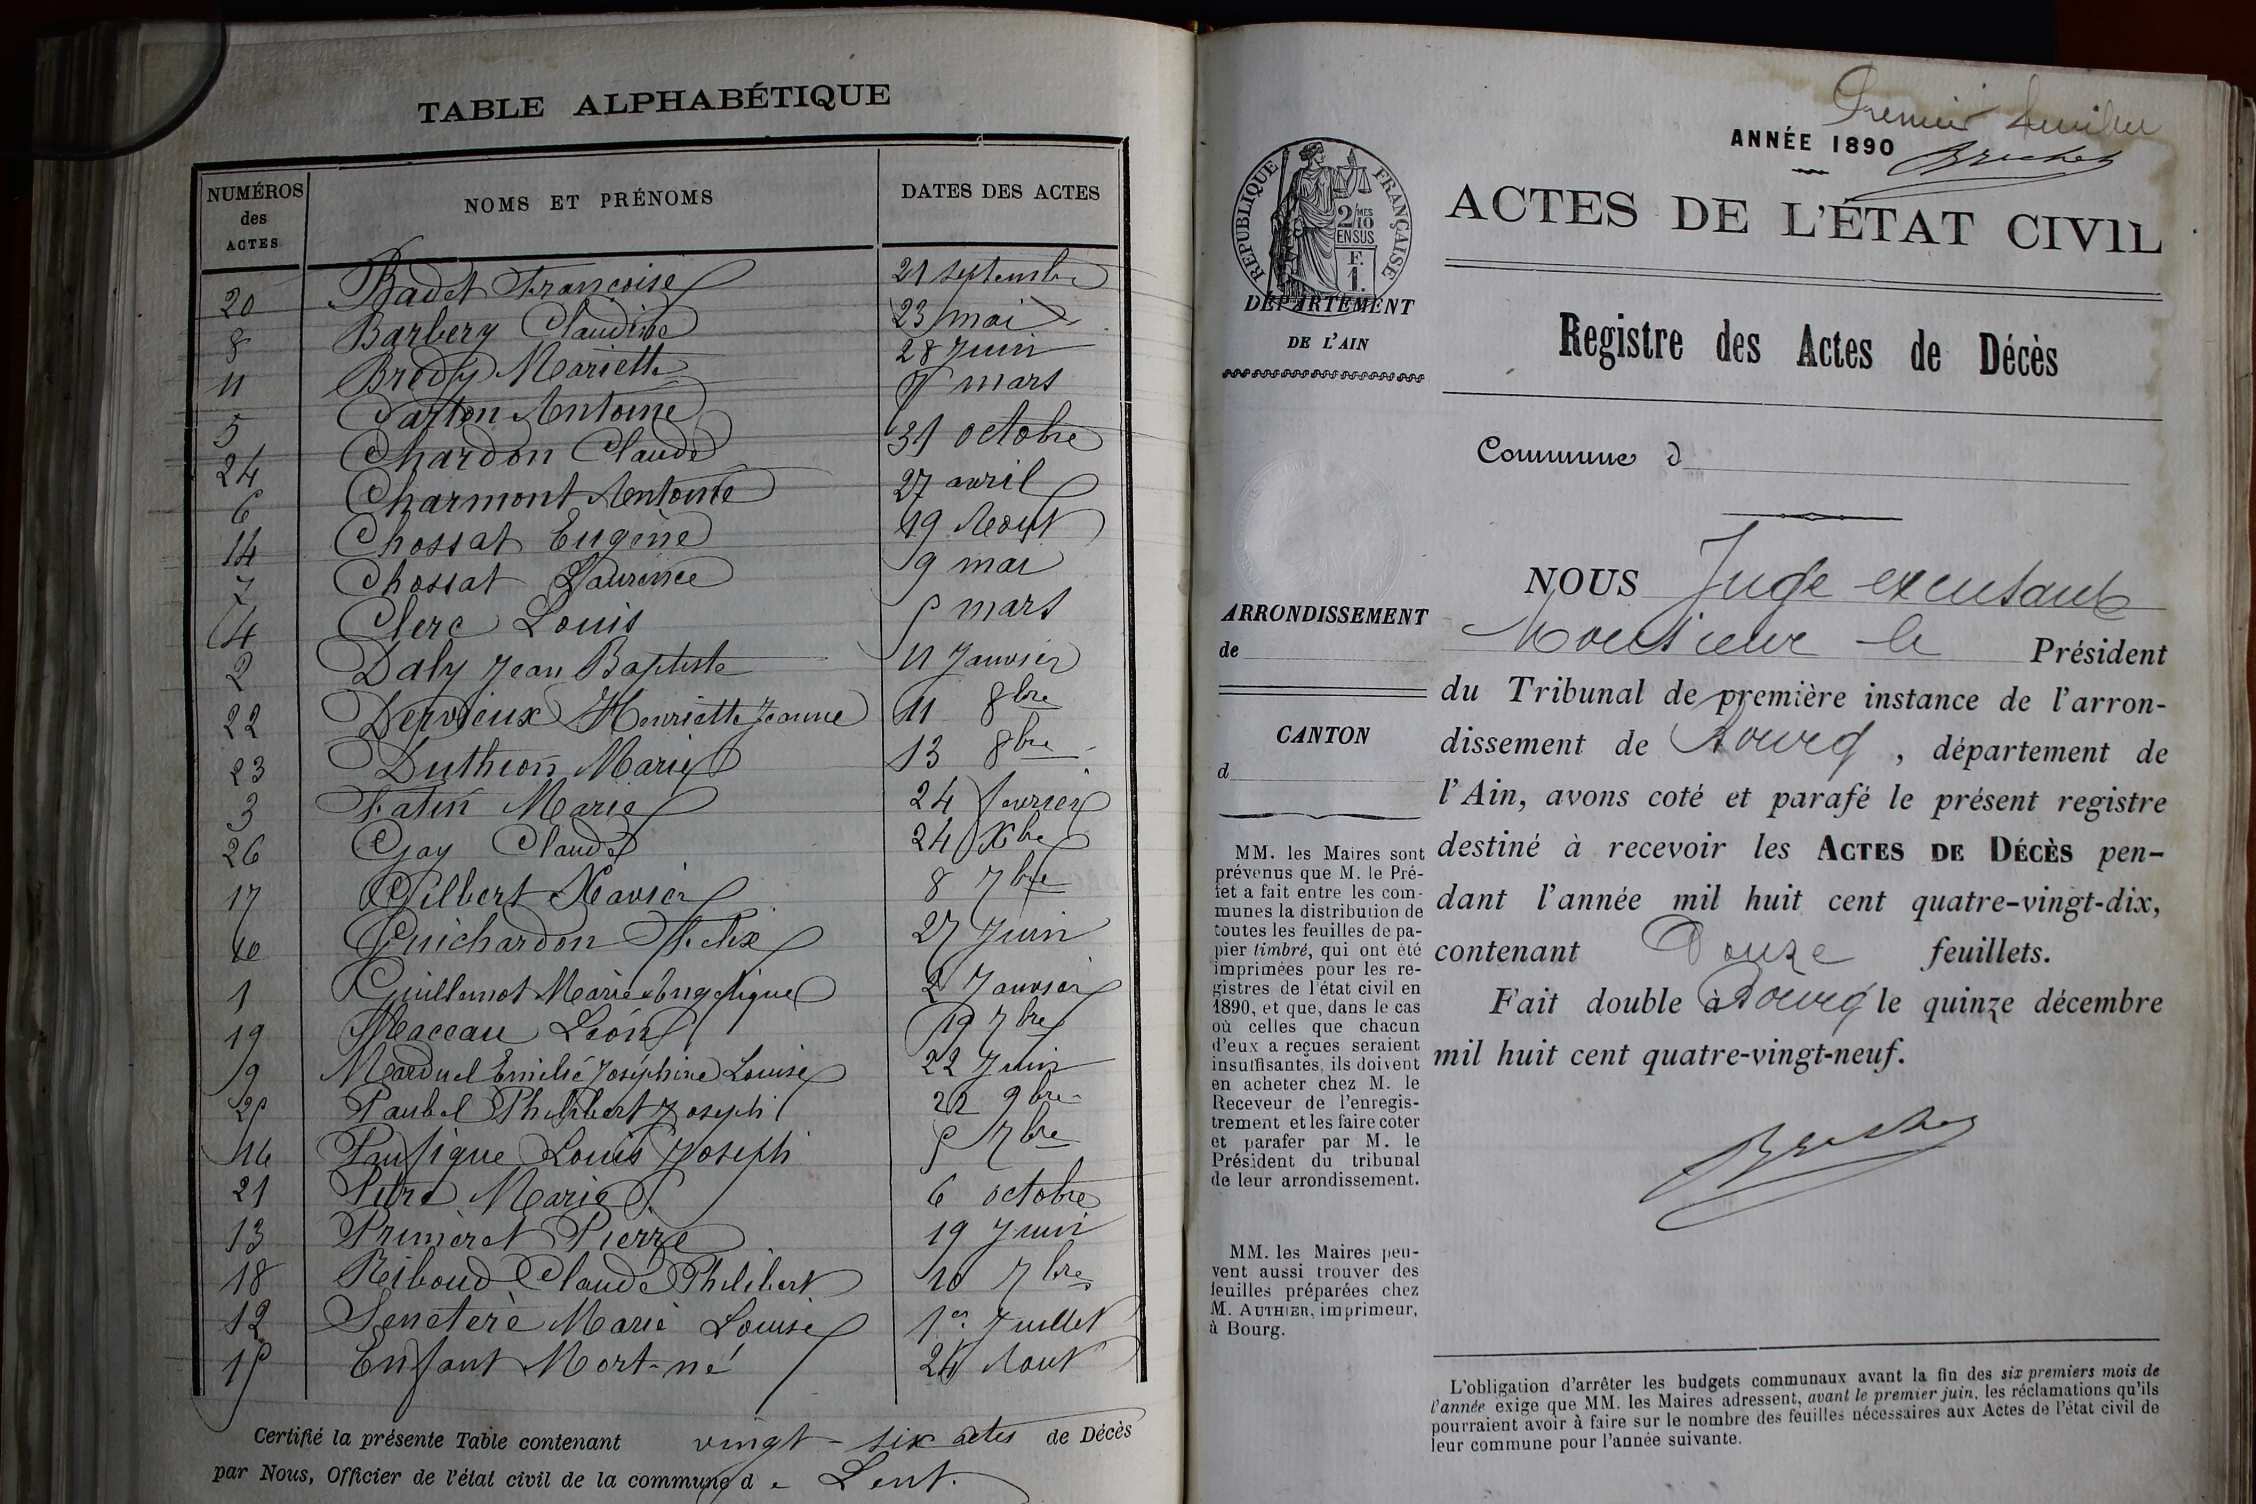 TABLE ALPHABÉTIQUE
NUMÉROS des ACTES
NOMS ET PRÉNOMS
DATES DES ACTES
20 Badet Françoise 21 septembre
8 Barbery Claudine 23 mai
11 Bredy Mariette 28 Juin
5 Carton Antoine mars
24 Chardon Claude 31 octobre
6 Charmont Antoine 27 avril
14 Chossat Eugène 19 Aout
7 Chossat Laurence 9 mai
4 Clerc Louis 5 mars
2 Daly Jean Baptiste 11 Janvier
22 Dervieux Henriette Jeanne 11 8bre
23 Duthion Marie 13 8bre
3 Fatin Marie 24 fevrier
26 Gay Claude 24 Xbre
17 Gilbert Xavier 8 7bre
10 Guichardon Felix 27 Juin
1 Guillemot Marie Angelique 2 Janvier
19 Maceau Léon 19 7bre
9 Marduel Emilie Joséphine Louise 22 Juin
25 Paubel Philibert Joseph 22 9bre
16 Louis Joseph 5 7bre
21 Marie 6 octobre
13 Primeret Pierre 19 Juin
18 Riboud Claude Philibert 10 7bre
12 Senetère Marie Louise 1er Juillet
15 Enfant Mort-né 24 Aout
Certifié la présente Table contenant vingt-six actes de Décès
par Nous, Officier de l'état civil de la commune de Lent.
Premier
ANNÉE 1890
RÉPUBLIQUE FRANÇAISE
2/MES 10 EN SUS
F. 1.
ACTES DE L'ÉTAT CIVIL
DÉPARTEMENT
DE L'AIN
Registre des Actes de Décès
Commune d
ARRONDISSEMENT
de
CANTON
d
MM. les Maires sont
prévenus que M. le Pré-
fet a fait entre les com-
munes la distribution de
toutes les feuilles de pa-
pier timbré, qui ont été
imprimées pour les re-
gistres de l'état civil en
1890, et que, dans le cas
où celles que chacun
d'eux a reçues seraient
insuffisantes, ils doivent
en acheter chez M. le
Receveur de l'enregis-
trement et les faire coter
et parafer par M. le
Président du tribunal
de leur arrondissement.
MM. les Maires peu-
vent aussi trouver des
feuilles préparées chez
M. AUTHIER, imprimeur,
à Bourg.
NOUS Juge
Monsieur le Président
du Tribunal de première instance de l'arron-
dissement de Bourg, département de
l'Ain, avons coté et parafé le présent registre
destiné à recevoir les ACTES DE DÉCÈS pen-
dant l'année mil huit cent quatre-vingt-dix,
contenant Douze feuillets.
Fait double à Bourg le quinze décembre
mil huit cent quatre-vingt-neuf.
L'obligation d'arrêter les budgets communaux avant la fin des six premiers mois de
l'année exige que MM. les Maires adressent, avant le premier juin, les réclamations qu'ils
pourraient avoir à faire sur le nombre des feuilles nécessaires aux Actes de l'état civil de
leur commune pour l'année suivante.